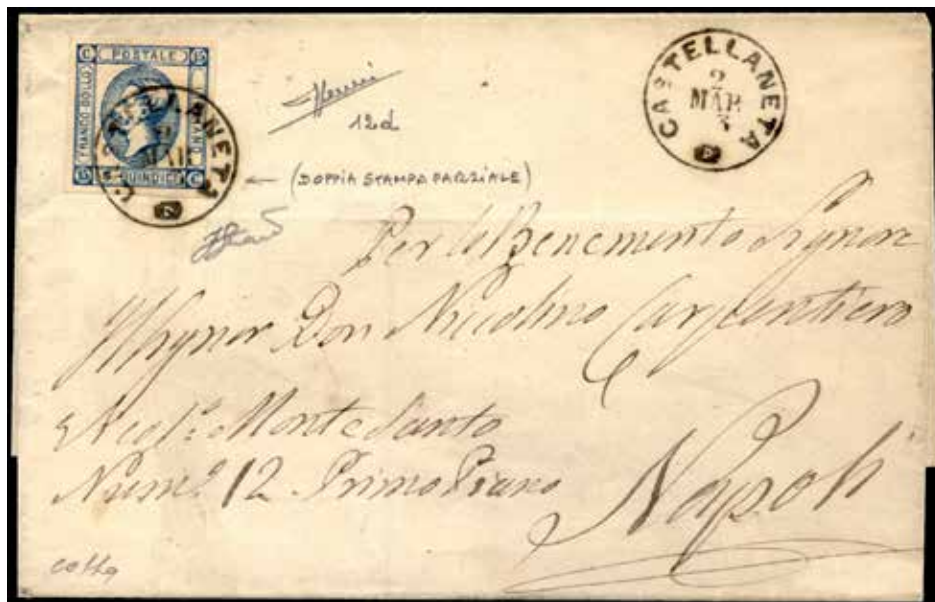 C POSTALE 15
FRANCO BOLLO
15 QUINDICI C
CASTELLANETA
MAR
CASTELLANETA
2
MAR
12d
(DOPPIA STAMPA PARZIALE)
Per lo Benemerito Signore
Il Signor Don Nicolino Carpentiero
Monte Santo
Num.º 12 Primo Piano
Napoli